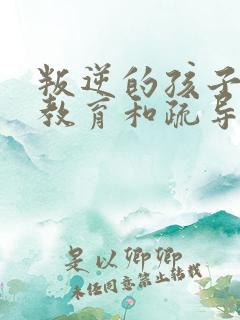 叛逆的孩子
教育和疏导
是以卿卿
未经同意禁止转载